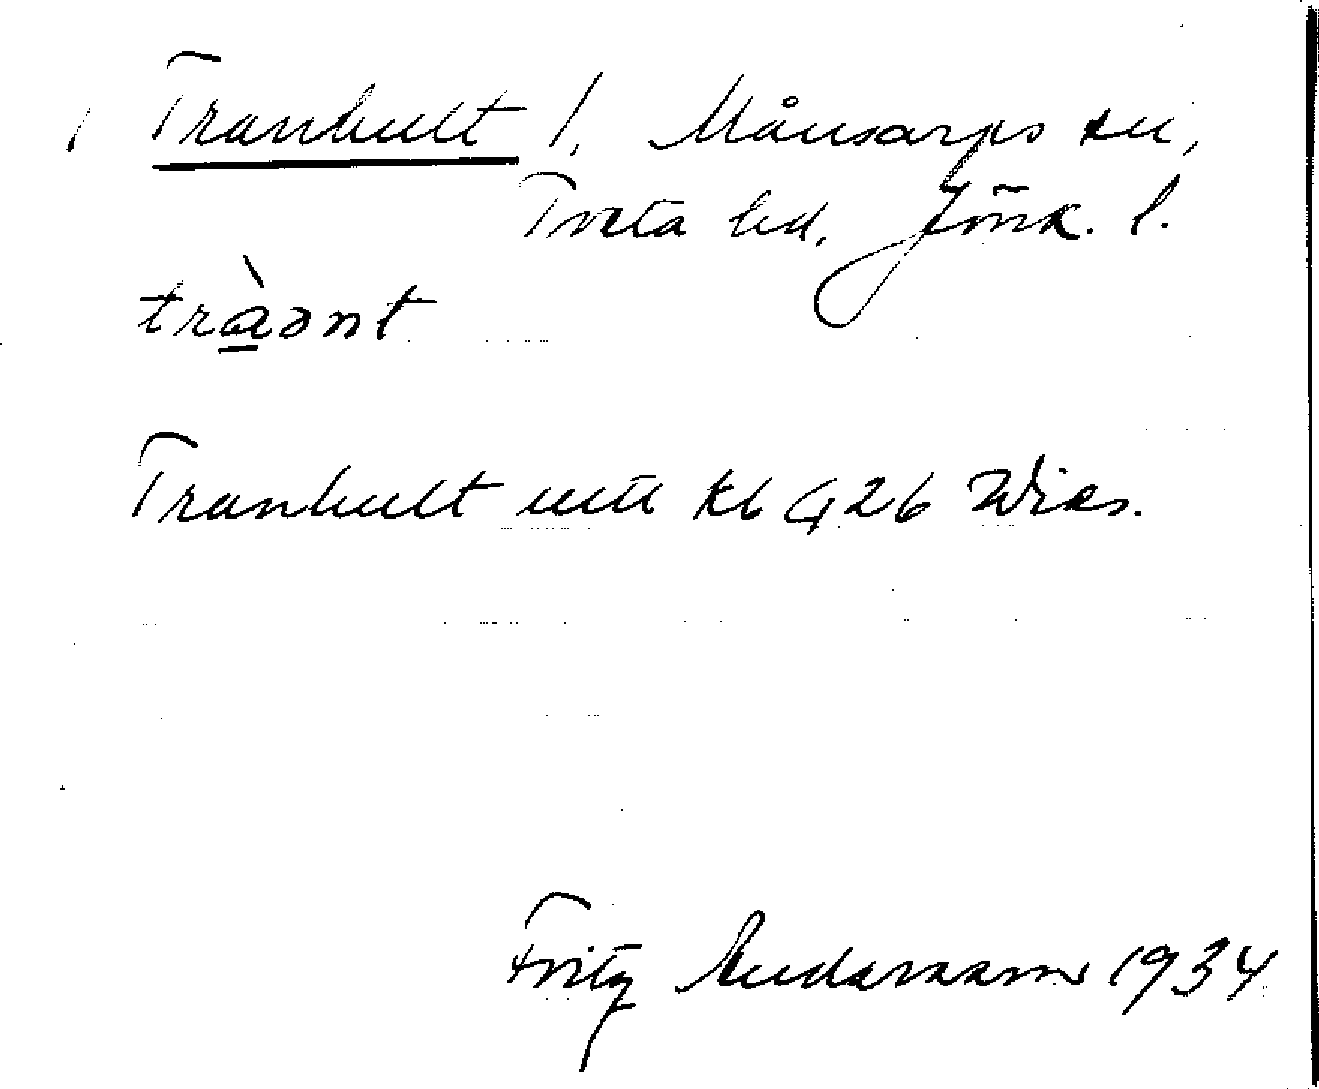 Tranhult l. Månsarps sn,
Tveta hd, Jönk. l.
tràənt
Tranhult Kb G 26 Wies.
Fritz Andersson 1934